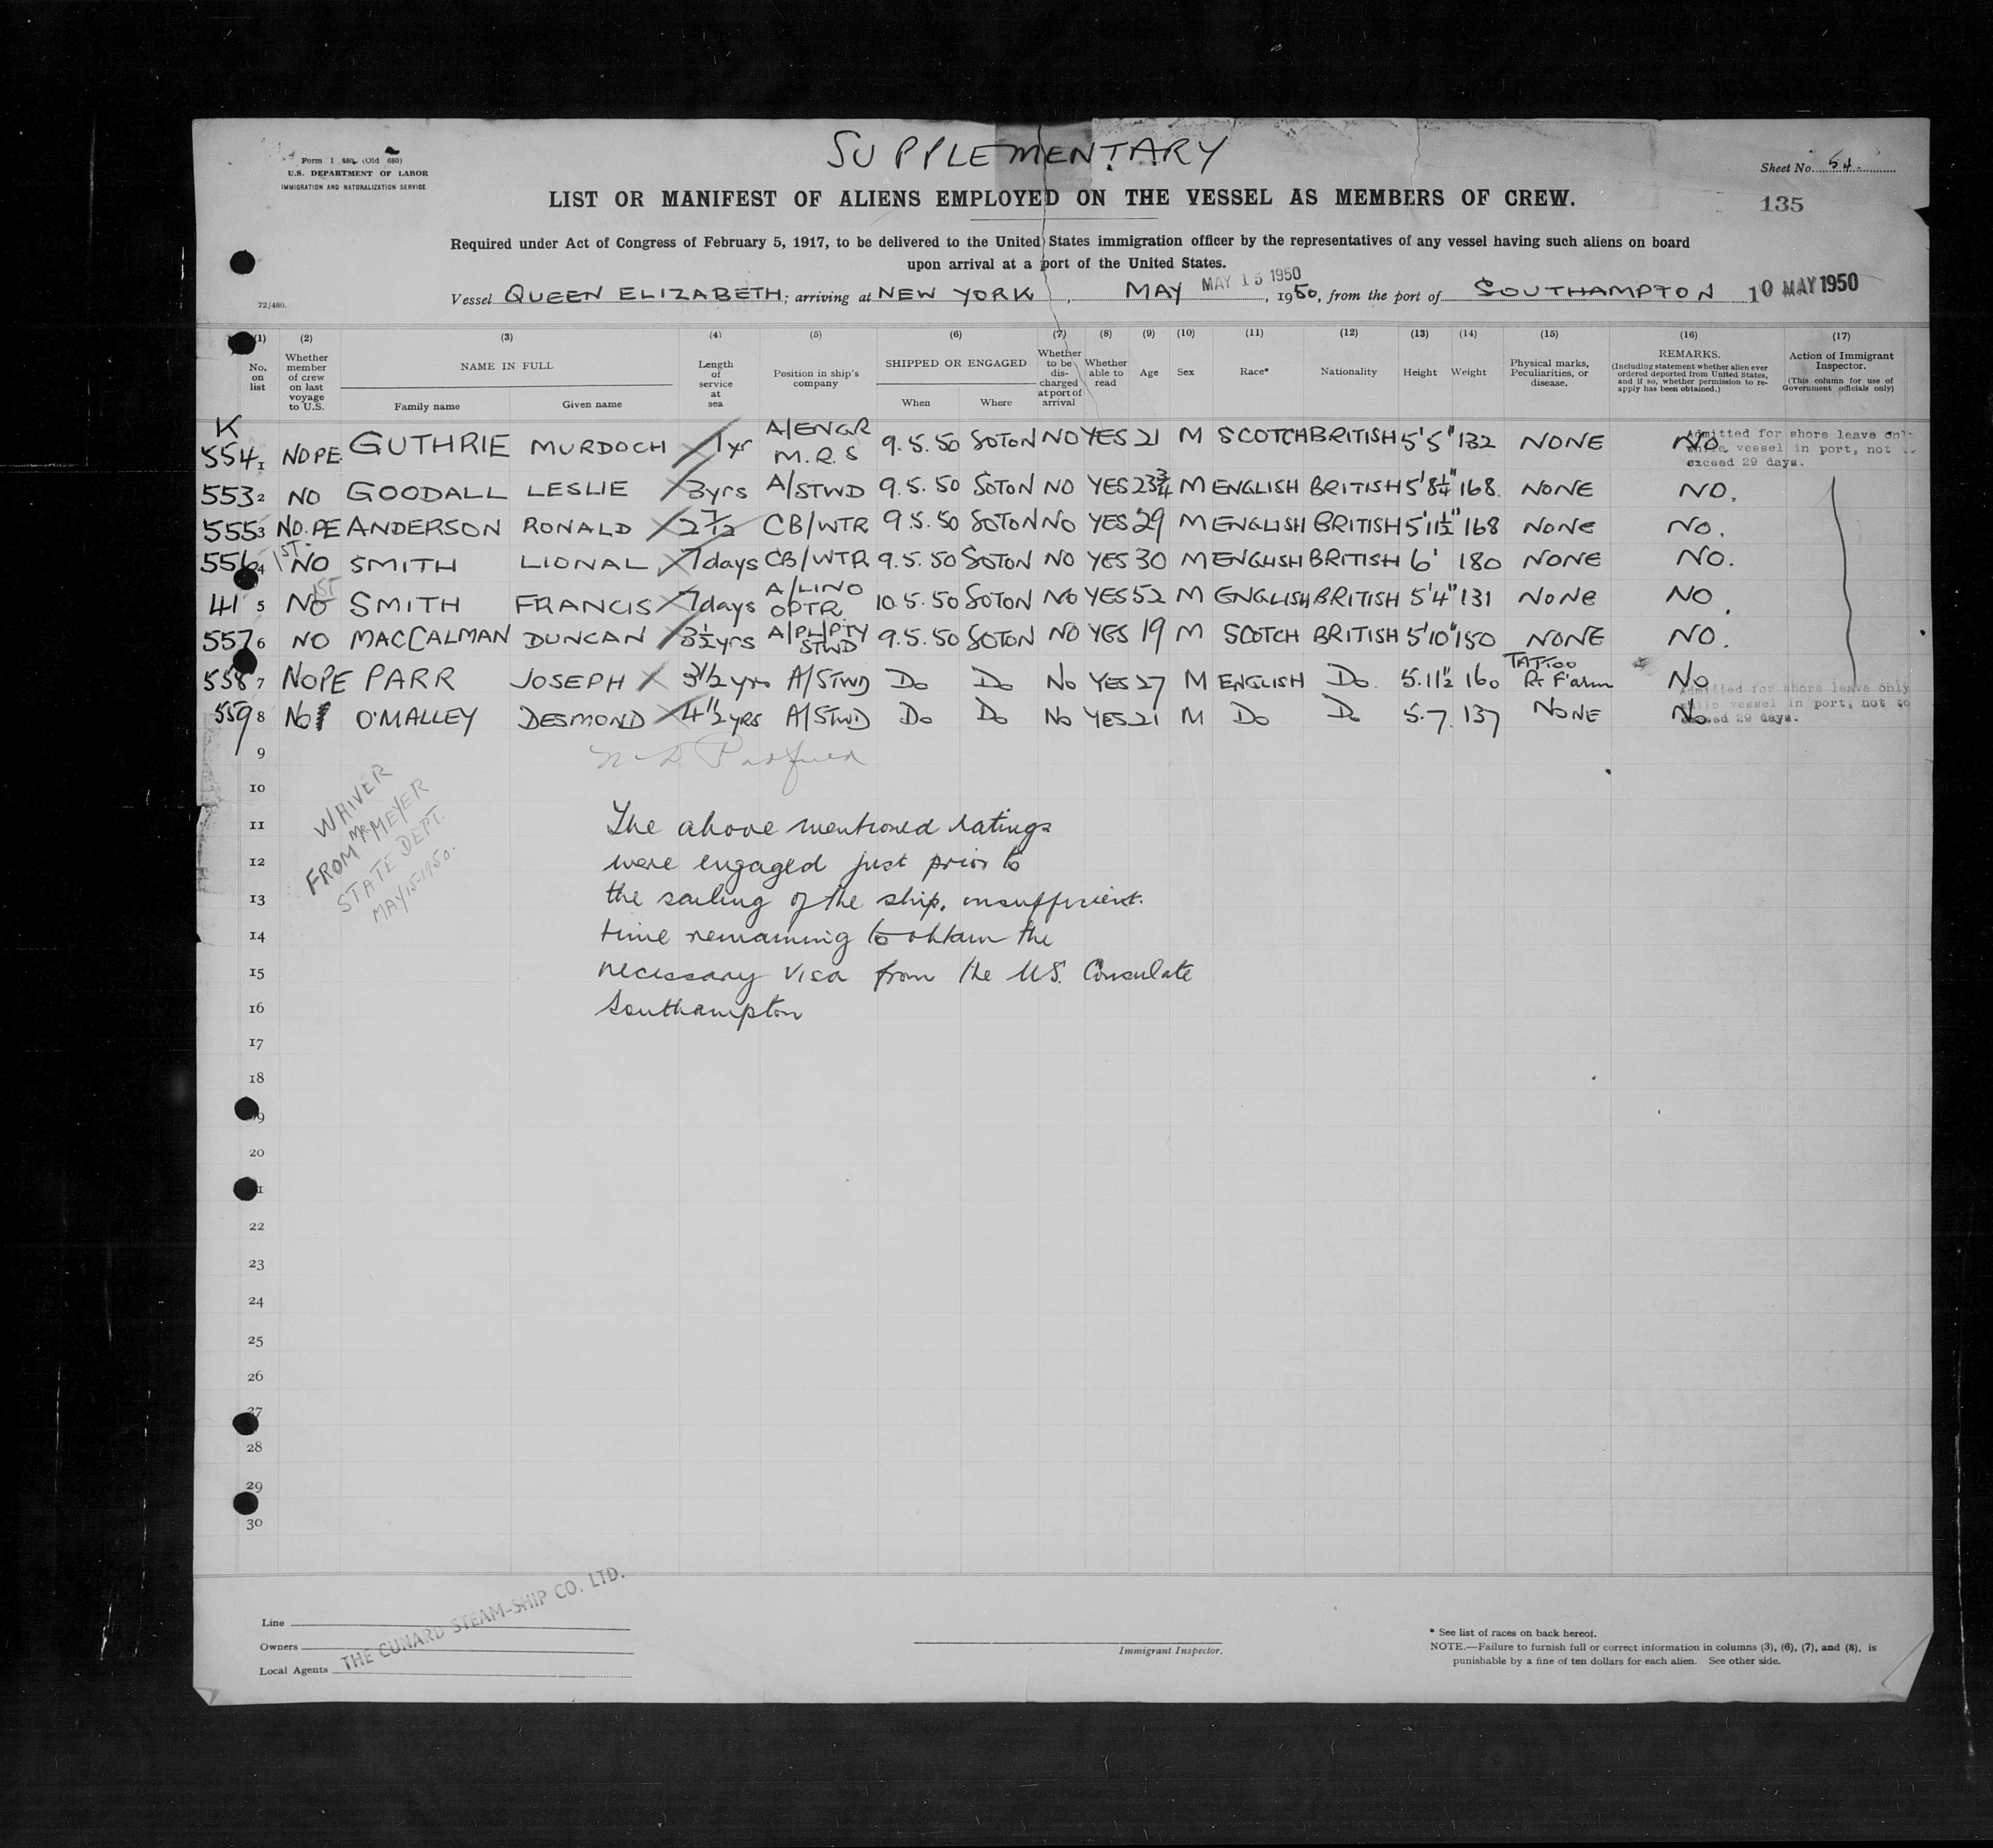 SUPPLEMENTARY
Form I 480 (Old 680)
U.S. DEPARTMENT OF LABOR
IMMIGRATION AND NATURALIZATION SERVICE
Sheet No. 54.
135
LIST OR MANIFEST OF ALIENS EMPLOYED ON THE VESSEL AS MEMBERS OF CREW.
Required under Act of Congress of February 5, 1917, to be delivered to the United States immigration officer by the representatives of any vessel having such aliens on board
upon arrival at a port of the United States.
72/480.
Vessel QUEEN ELIZABETH; arriving at NEW YORK, MAY MAY 15 1950, 1950, from the port of SOUTHAMPTON 10 MAY 1950
(1) (2) (3) (4) (5) (6) (7) (8) (9) (10) (11) (12) (13) (14) (15) (16) (17)
No. on list
Whether member of crew on last voyage to U.S.
NAME IN FULL
Family name Given name
Length of service at sea
Position in ship's company
SHIPPED OR ENGAGED
When Where
Whether to be discharged at port of arrival
Whether able to read
Age
Sex
Race*
Nationality
Height
Weight
Physical marks, Peculiarities, or disease.
REMARKS.
(Including statement whether alien ever ordered deported from United States, and if so, whether permission to re-apply has been obtained.)
Action of Immigrant Inspector.
(This column for use of Government officials only)
K
554 1 NO PE GUTHRIE MURDOCH X 1 yr A/ENGR M.R.S 9.5.50 SOTON NO YES 21 M SCOTCH BRITISH 5'5" 132 NONE NO
Admitted for shore leave only
while vessel in port, not to
exceed 29 days.
553 2 NO GOODALL LESLIE 3yrs A/STWD 9.5.50 SOTON NO YES 23¾ M ENGLISH BRITISH 5'8¼" 168. NONE NO.
555 3 NO.PE ANDERSON RONALD X 2 7/12 CB/WTR 9.5.50 SOTON NO YES 29 M ENGLISH BRITISH 5'11½" 168 NONE NO.
556 4 1ST. NO SMITH LIONAL X 7days CB/WTR 9.5.50 SOTON NO YES 30 M ENGLISH BRITISH 6' 180 NONE NO.
41 5 NO 1ST SMITH FRANCIS X 7days A/LINO OPTR 10.5.50 SOTON NO YES 52 M ENGLISH BRITISH 5'4" 131 NONE NO.
557 6 NO MACCALMAN DUNCAN X 3½yrs A/PL/PTY STWD 9.5.50 SOTON NO YES 19 M SCOTCH BRITISH 5'10" 150 NONE NO.
558 7 NO PE PARR JOSEPH X 3½ yrs A/STWD Do Do No YES 27 M ENGLISH Do. 5.11½ 160 TATTOO Rt F'arm No
Admitted for shore leave only
while vessel in port, not to
exceed 29 days.
559 8 No O'MALLEY DESMOND X 4½ YRS A/STWD Do Do No YES 21 M Do Do 5.7. 137 NONE No
9
10
WAIVER
FROM MR MEYER
STATE DEPT.
MAY 15-1950.
11 The above mentioned ratings
12 were engaged just prior to
13 the sailing of the ship, insufficient.
14 time remaining to obtain the
15 necessary visa from the U.S. Consulate
16 Southampton
17
18
19
20
21
22
23
24
25
26
27
28
29
30
Line
Owners
Local Agents
THE CUNARD STEAM-SHIP CO. LTD.
Immigrant Inspector.
* See list of races on back hereof.
NOTE.—Failure to furnish full or correct information in columns (3), (6), (7), and (8), is
punishable by a fine of ten dollars for each alien. See other side.